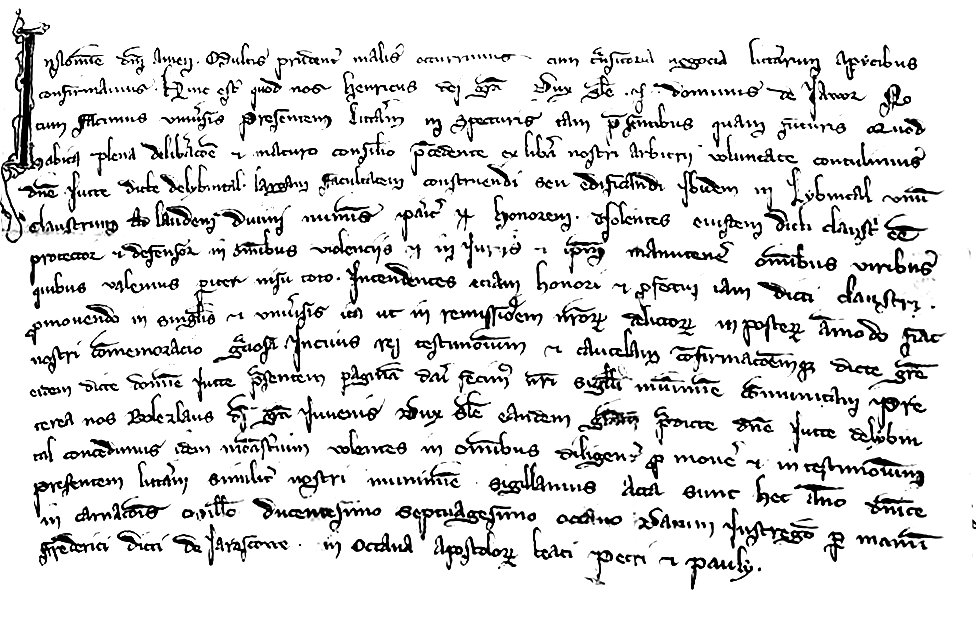 In nomine dni amen. Multis prudenter malis occurrimus cum transitoria negocia litterarum apicibus
confirmamus. Hinc est quod nos henricus dei gra Dux Sle. et dominus de Jawor No
tum facimus universis presentem litteram inspecturis tam presentibus quam futuris Quod
habita plena deliberacoe et maturo consilio precedente ex libera nostri arbitrii voluntate contulimus
dne Jutte dicte de lybintal. laxam facultatem construendi seu edificandi Ibidem in Lybintal unu
claustrum ad laudem divini nuninis pariter et honorem. Volentes eiusdem dicti claustri ee
protector et defensor in omibus violenciis et in Juriis et ipm manutenere omibus viribus
quibus valemus pariter nisu toto. Intendentes eciam honori et profectui iam dicti claustri.
promovendo in singulis et universis ita ut in remissioem nrorum delictorum in posterum amodo fiat
nostri comemoracio graciosa In cuius rei testimonium et cautelam confirmacoemque dicte gre
eidem dicte domine Jutte presentem paginam dari fecimus nri sigilli munimine comunitam Pre
terea nos Bolezlaus di gra Juvenis Dux Sle eandem graciam predicte dne Jutte de lybin
tal concedimus idem monasterium volentes in omibus diligenter pro movere et in testimonium
presentem litteram similiter nostri munimine sigillamus Acta sunt hec Anno dnice
in carnacois millo ducentesimo septuagesimo octavo Datum In stregom per manum
frederici dicti de In octava apostolorum beati Petri et Pauly.